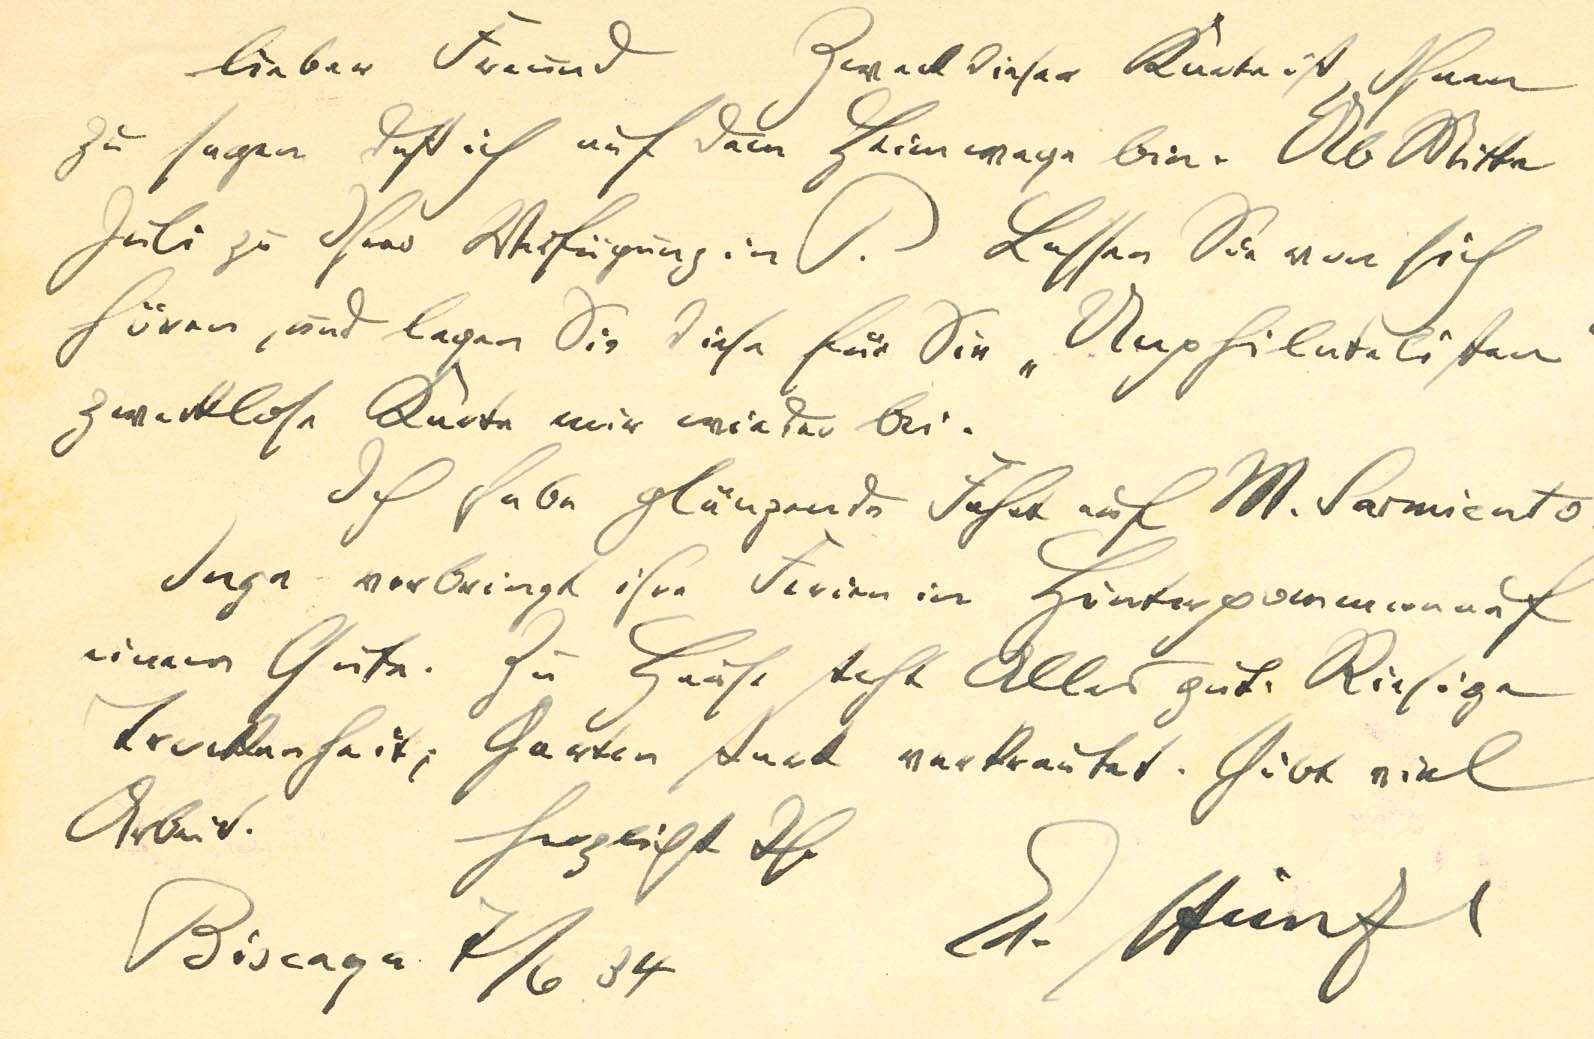 lieber Freund Zweck dieser Karte ist, Ihnen
zu sagen daß ich auf dem Heimwege bin. Ab Mitte
Juli zu Ihrer Verfügung in P. Lassen Sie von sich
hören, und legen Sie diese für Sie „Unphilatelisten“
zwecklose Karte mir wieder bei.
Ich habe glänzende Fahrt auf M. Sarmiento.
Inge verbringt ihre Ferien in Hinterpommern auf
einem Gute. Zu Hause steht Alles gut. Riesige
Trockenheit, Garten stark verkrautet. Gibt viel
Arbeit. herzlichst Ihr
Biscaya 7/6 34